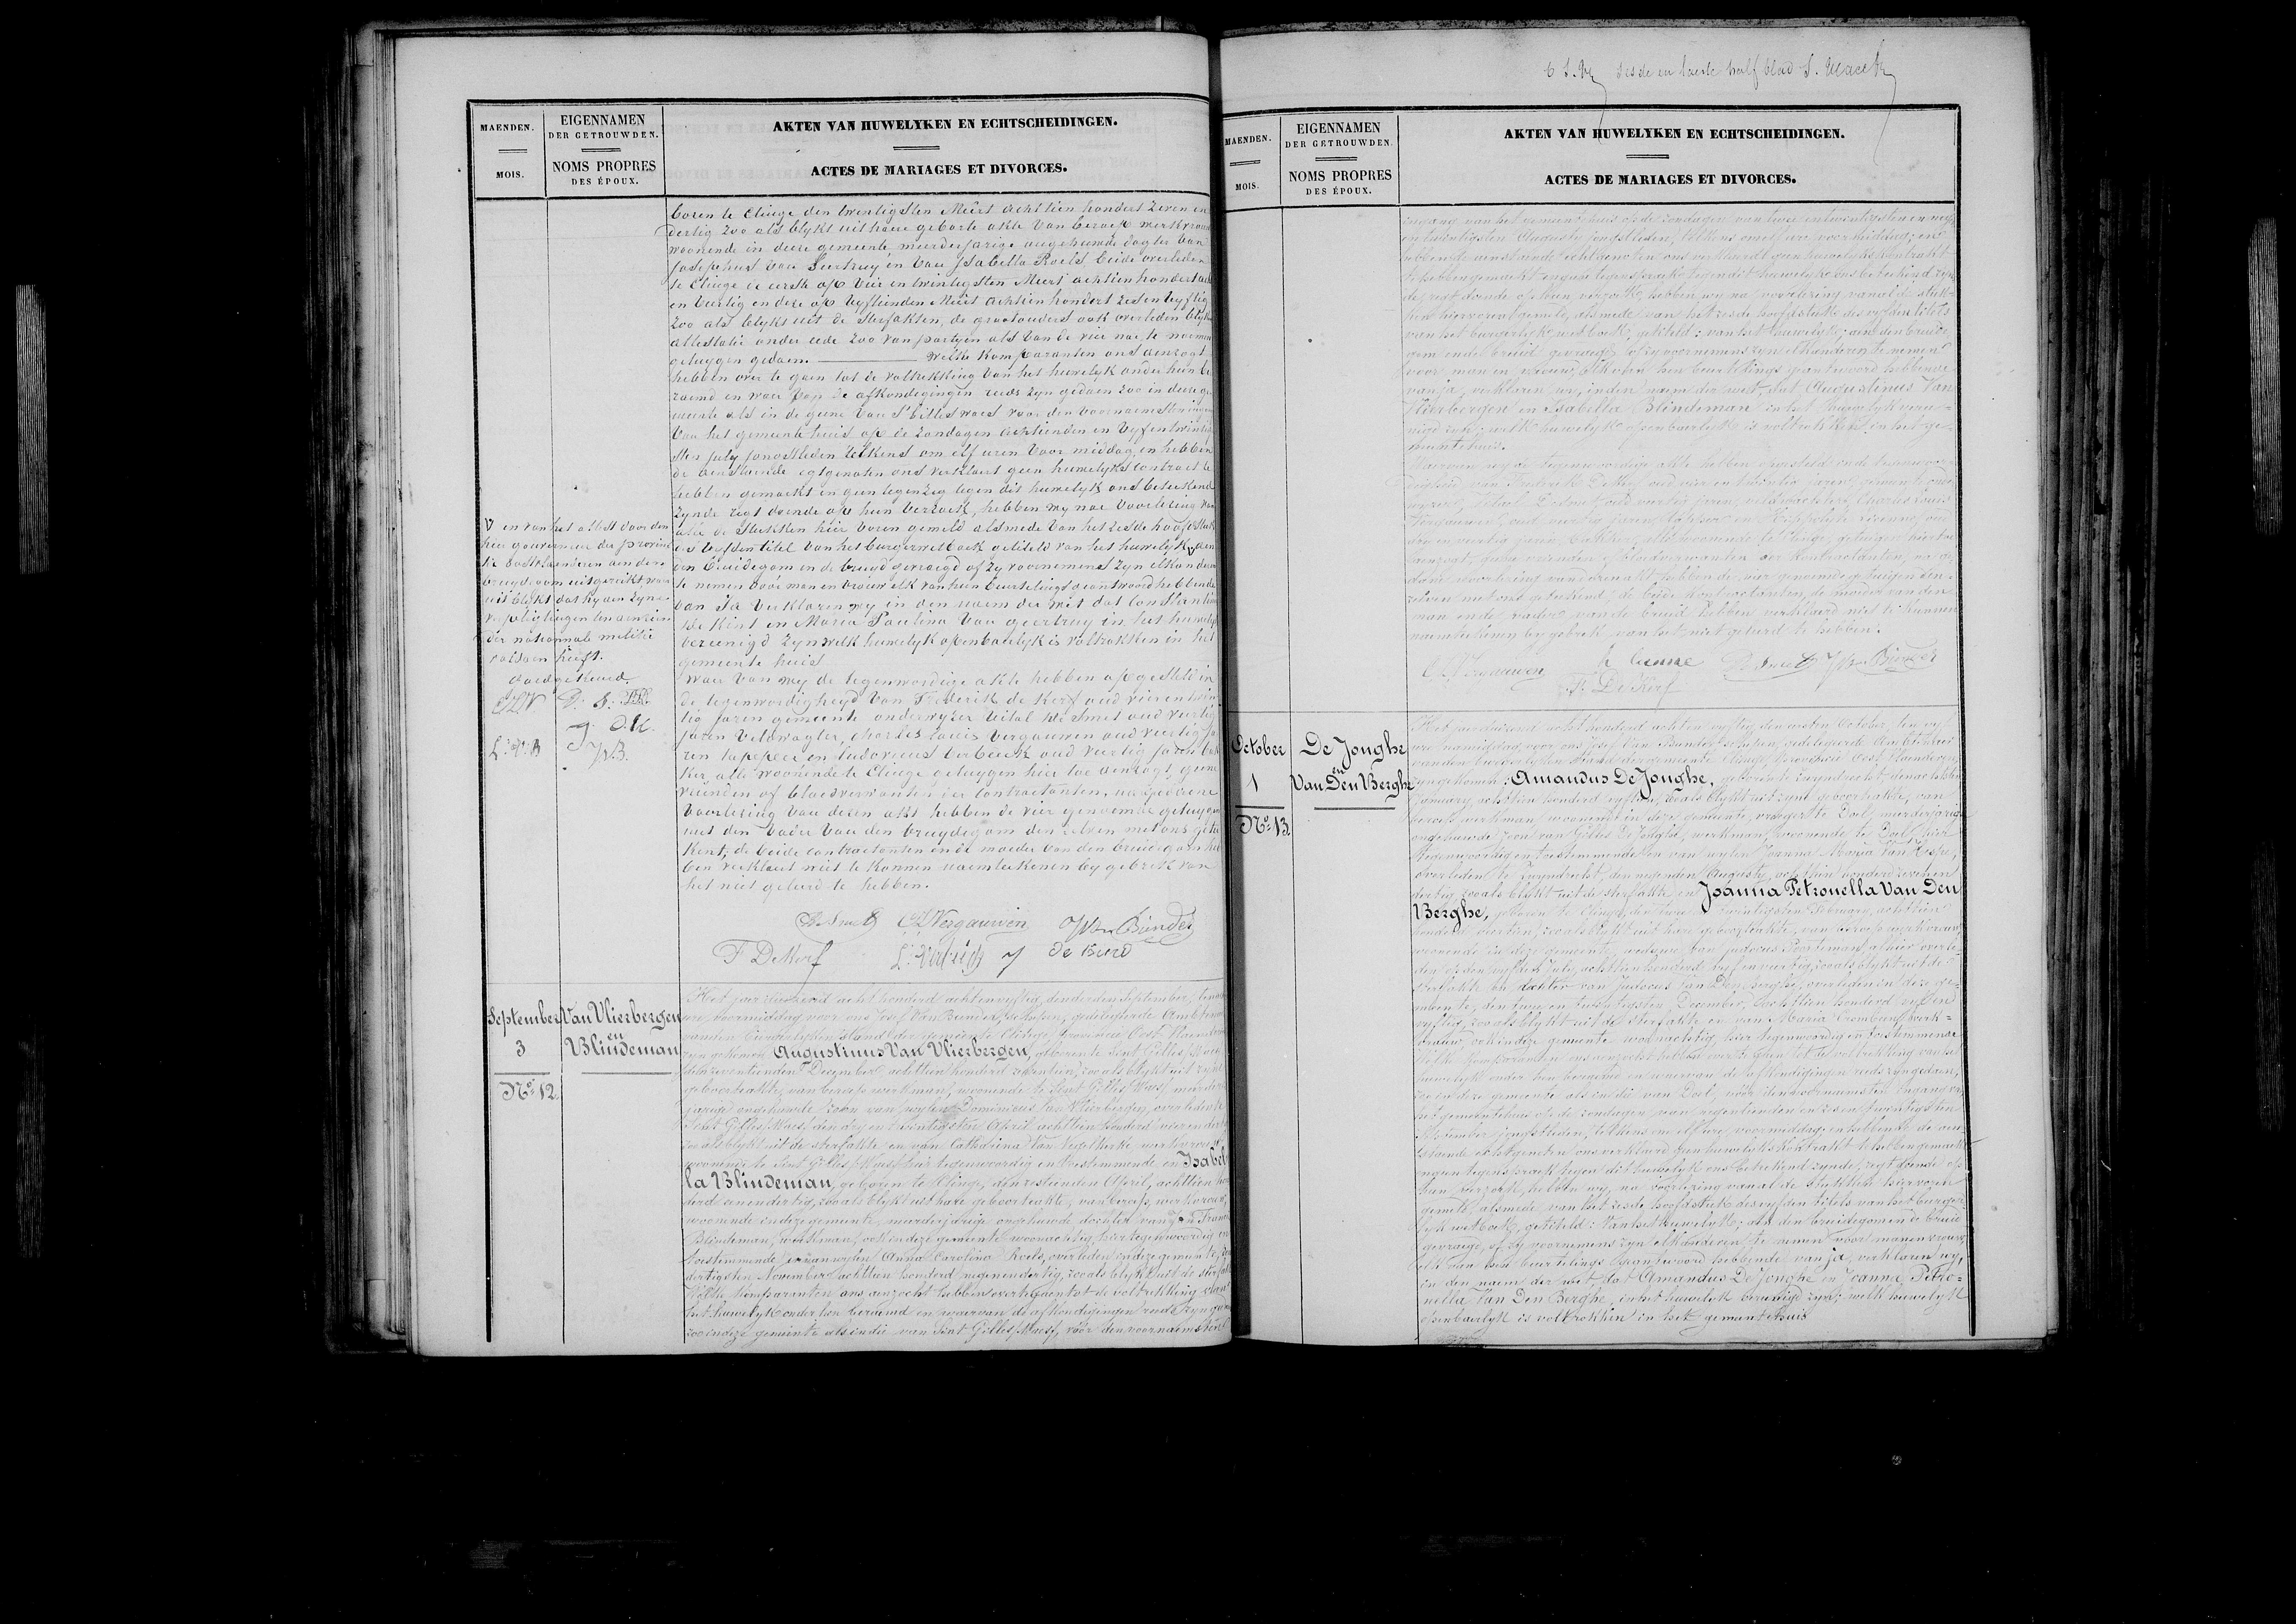 MAENDEN.
MOIS.
EIGENNAMEN
DER GETROUWDEN.
NOMS PROPRES
DES ÉPOUX.
AKTEN VAN HUWELYKEN EN ECHTSCHEIDINGEN.
ACTES DE MARIAGES ET DIVORCES.
boren te Clinge den twintigsten Meert achttien hondert zeven en
dertig zoo als blykt uit haere geborte akte van beroep werkvrouw
woonende in deze gemeente meerderjarige ongehuwde dogter van
Josephus van Geertruy en van Isabella Roels beide overleden
te Clinge de eerste op vier en twintigsten Meert achtien hondert acht
en veertig en deze op vyftienden Meert achtien hondert zes en vyftig
zoo als blykt uit de sterfakten, de grootouders ook overleden blykt
attestatie onder eede zoo van partyen als van de vier nae te noemen
getuygen gedaen. welke komparanten ons aenzogt
hebben over te gaen tot de voltrekking van het huwelyk onder hun be
raemd en waer van de afkondigingen reeds zyn gedaen zoo in deze ge
meente als in de geene van St Gilles waes voor den voornaemsten ingang
van het gemeente huis op de zondagen achtienden en vyfentwintig
sten july jongstleden telkens om elf uren voor middag, en hebben
de aenstaende egtgenoten ons verklaert geen huwelyks contract te
hebben gemaekt en geen tegenzeg tegen dit huwelyk ons beteekend
zynde regt doende op hun verzoek, hebben wy nae voorlezing van
alle de stukken hier voren gemeld alsmede van het zesde hoofdstuk
des vyfden titel van het burgerwetboek getiteld van het huwelyk aen
den bruidegom en de bruyd gevraegd of zy voornemens zyn elkanderen
te nemen voor man en vrouw elk van hen beurtelings geantwoord hebbende
van Ja verklaren wy in den naem der wet dat Constantin
De Kint en Maria Paulina Van geertruy in het huwelyk
vereenigd zyn welk huwelyk openbaerlyk is voltrokken in het
gemeente huis
waer van wy de tegenwoordige akte hebben opgesteld in
de tegenwoordigheyd van Frederik de Kerf oud vierentwin
tig jaren gemeente onderwyzer Vital De Smet oud veertig
jaren veldwagter, charles louis Vergauwen oud veertig ja
ren tapper en Ludovicus verbeeck oud veertig jaren bak
ker, alle woonende te Clinge getuygen hier toe aenzogt, geene
vrienden of bloedverwanten der contractanten, nae gedaene
voorlezing van dezen akt hebben de vier genoemde getuygen
met den vader van den bruydegom den zelven met ons getee
kent, de beide contractanten en de moeder van den bruidegom heb
ben verklaert niet te konnen naemteekenen by gebrek van
het niet geleerd te hebben.
V en van het attest door den
heer gouverneur der provin
tie Oostvlaenderen aen den
bruydegom uitgereikt waer
uit blykt dat hy aen zyne
verpligtingen ten aenzien
der nationale militie
voldaen heeft.
Goedgekeurd.
D. S.
J.V.B.
D Smet CL Vergauwen JVan Bunder
F De Kerf
September
3
No 12
Van Vlierbergen
en
Blindeman
Het jaer duizend acht honderd achtenvyftig, den derden September, ten
ure voormiddag voor ons Josef Van Bunder schepen, gedelegeerde Ambtenaer
van den Burgerlyken stand der gemeente Clinge, provincie Oost Vlaenderen
zyn gekomen Augustinus Van Vlierbergen, geboren te Sint Gilles/Waes
den zeventienden December achttien honderd zoo als blykt uit zyne
geboorteakte, van beroep werkman, woonende te Sint Gilles Waes meerder
jarige ongehuwde zoon van wylen Dominicus Van Vlierbergen, overleden te
Sint Gilles/Waes den dry en twintigsten April achttien honderd vier en dertig
zoo als blykt uit de sterfakte en van Catharina Van werkvrouw
woonende te Sint Gilles/Waes hier tegenwoordig en toestemmende en Isabel
la Blindeman, geboren te Clinge, den zestienden April, achttien hon
derd eenendertig, zoo als blykt uit hare geboorteakte, van beroep werkvrouw
woonende in deze gemeente, meerderjarige ongehuwde dochter van
Blindeman, werkman, ook in deze gemeente woonachtig, hier tegenwoordig en
toestemmende en van wylen Anna Carolina Roels, overleden in deze gemeente, den
dertigsten November achttien honderd negenendertig, zoo als blykt uit de sterfakte
Welke komparanten ons aenzocht hebben over te gaen tot de voltrekking van
het huwelyk onder hen beraemd en waarvan de afkondigingen reeds zyn gedaen
zoo in deze gemeente als in die van Sint Gilles/Waes, vóór den voornaemsten
6 zesde en laetste half blad
MAENDEN.
MOIS.
EIGENNAMEN
DER GETROUWDEN.
NOMS PROPRES
DES ÉPOUX.
AKTEN VAN HUWELYKEN EN ECHTSCHEIDINGEN.
ACTES DE MARIAGES ET DIVORCES.
ingang van het gemeentehuis op de zondagen van twee en twintigsten en negen
en twintigsten Augusty jongstleden, telkens om elf ure voormiddag; en
hebben de aenstaende echtgenoten ons verklaerd geen huwelykskontrakt
te hebben gemaekt en geene tegenspraek tegen dit huwelyk ons beteekend zyn
de, regt doende op hun verzoek, hebben wy na voorlezing van al de stuk
ken hiervoren gemeld, alsmede van het zesde hoofdstuk des vyfden titels
van het burgerlyk wetboek, getiteld: van het huwelyk; aen den bruide
gom en de bruid gevraegd, of zy voornemens zyn elkanderen te nemen
voor man en vrouw, elk van hen beurtelings geantwoord hebbende
van ja, verklaren wy, in den naem der wet, dat Augustinus Van
Vlierbergen en Isabella Blindeman in het huwelyk veree-
nigd zyn; welk huwelyk openbaerlyk is voltrokken in het ge-
meentehuis.
Waervan wy de tegenwoordige akte hebben opgesteld in de tegenwoor-
digheid van Frederik De Kerf oud vier en twintig jaren, gemeente onder
wyzer, Vital De Smet oud veertig jaren, veldwachter, Charles Louis
Vergauwen, oud veertig jaren, tapper en Hippolyte
veertig jaren, bakker, alle woonende te Clinge, getuigen hier toe
aenzocht, geene vrienden of bloedverwanten der kontractanten, na ge
dane voorlezing van dezen akt hebben de vier genoemde getuigen den
zelven met ons geteekend, de beide kontractanten, de moeder van den
man en de vader van de bruid hebben verklaerd niet te kunnen
naemteekenen by gebrek van het niet geleerd te hebben.
CL Vergauwen D Smet JVan Bunder
F. De Kerf
October
1
No 13
De Jonghe
en
Van Den Berghe
Het jaer duizend acht honderd achtenvyftig, den eersten October, ten vyf
ure namiddag, voor ons Josef Van Bunder schepen, gedelegeerde Ambtenaer
van den burgerlyken stand der gemeente Clinge, provincie Oost Vlaenderen
zyn gekomen: Amandus De Jonghe, geboren te Zwyndrecht, den achtsten
January achttien honderd vyftien, zoo als blykt uit zyne geboorteakte, van
beroep werkman, woonende in deze gemeente, vroeger te Doel, meerderjarige
ongehuwde zoon van Gilles De Jonghe, werkman, woonende te Doel, hier
tegenwoordig en toestemmende en van wylen Joanna Maria Van
overleden te Zwyndrecht, den negenden Augusty, achttien honderd zeven en
dertig, zoo als blykt uit de sterfakte en Joanna Petronella Van Den
Berghe, geboren te Clinge, den twee en twintigsten February, achttien
honderd veertien, zoo als blykt uit hare geboorteakte, van beroep werkvrouw
woonende in deze gemeente, weduwe van Judocus Poorteman, alhier overle
den op den vyfden July, achttien honderd vyf en veertig, zoo als blykt uit de
sterfakte en dochter van Judocus Van Den Berghe, overleden in deze ge-
meente, den twee en twintigsten December, achttien honderd vyf en
vyftig, zoo als blykt uit de sterfakte en van Maria Crombeen, werk-
vrouw, ook in deze gemeente woonachtig, hier tegenwoordig en toestemmende
Welke komparanten ons aenzocht hebben over te gaen tot de voltrekking van het
huwelyk onder hen beraemd en waervan de afkondigingen reeds zyn gedaen,
zoo in deze gemeente als in die van Doel, vóór den voornaemsten ingang van
het gemeentehuis op de zondagen van negentienden en zes en twintigsten
September jongstleden, telkens om elf ure, voormiddag, en hebben de aen
staende echtgenoten ons verklaerd geen huwelykskontrakt te hebben gemaekt
en geen tegenspraek tegen dit huwelyk ons beteekend zynde, regt doende op
hun verzoek, hebben wy, na voorlezing van al de stukken hiervoren
gemeld, alsmede van het zesde hoofdstuk des vyfden titels van het burger
lyk wetboek, getiteld: Van het huwelyk; aen den bruidegom en de bruid
gevraegd, of zy voornemens zyn elkanderen te nemen voor man en vrouw,
elk van hen beurtelings geantwoord hebbende van ja, verklaren wy,
in den naem der wet, dat Amandus De Jonghe en Joanna Petro-
nella Van Den Berghe, in het huwelyk vereenigd zyn; welk huwelyk
openbaerlyk is voltrokken in het gemeentehuis